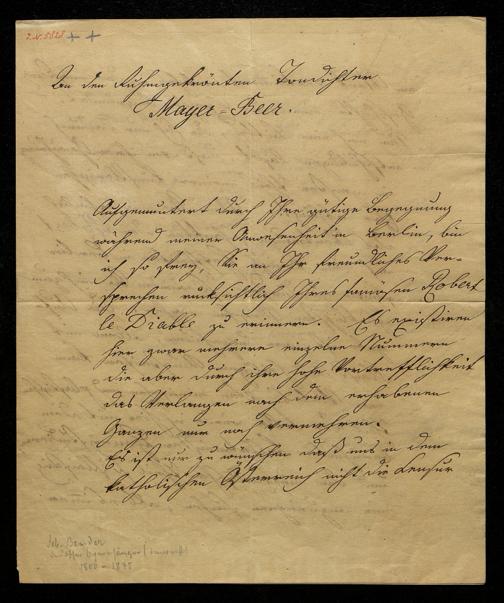 I.N. 5828
An den Ruhmgekrönten Tondichter
Mayer=Beer.
Aufgemuntert durch Ihre gütige Begegnung
während meiner Anwesenheit in Berlin, bin
ich so frey, Sie an Ihr freundliches Ver-
sprechen rücksichtlich Ihres famösen Robert
le Diable zu erinnern. Es existiren
hier zwar mehrere einzelne Nummern
die aber durch ihre hohe Vortrefflichkeit
das Verlangen nach dem erhabenen
Ganzen nur noch vermehren.
Es ist nur zu wünschen daß uns in dem
katholischen Österreich nicht die Censur
1800 - 1875